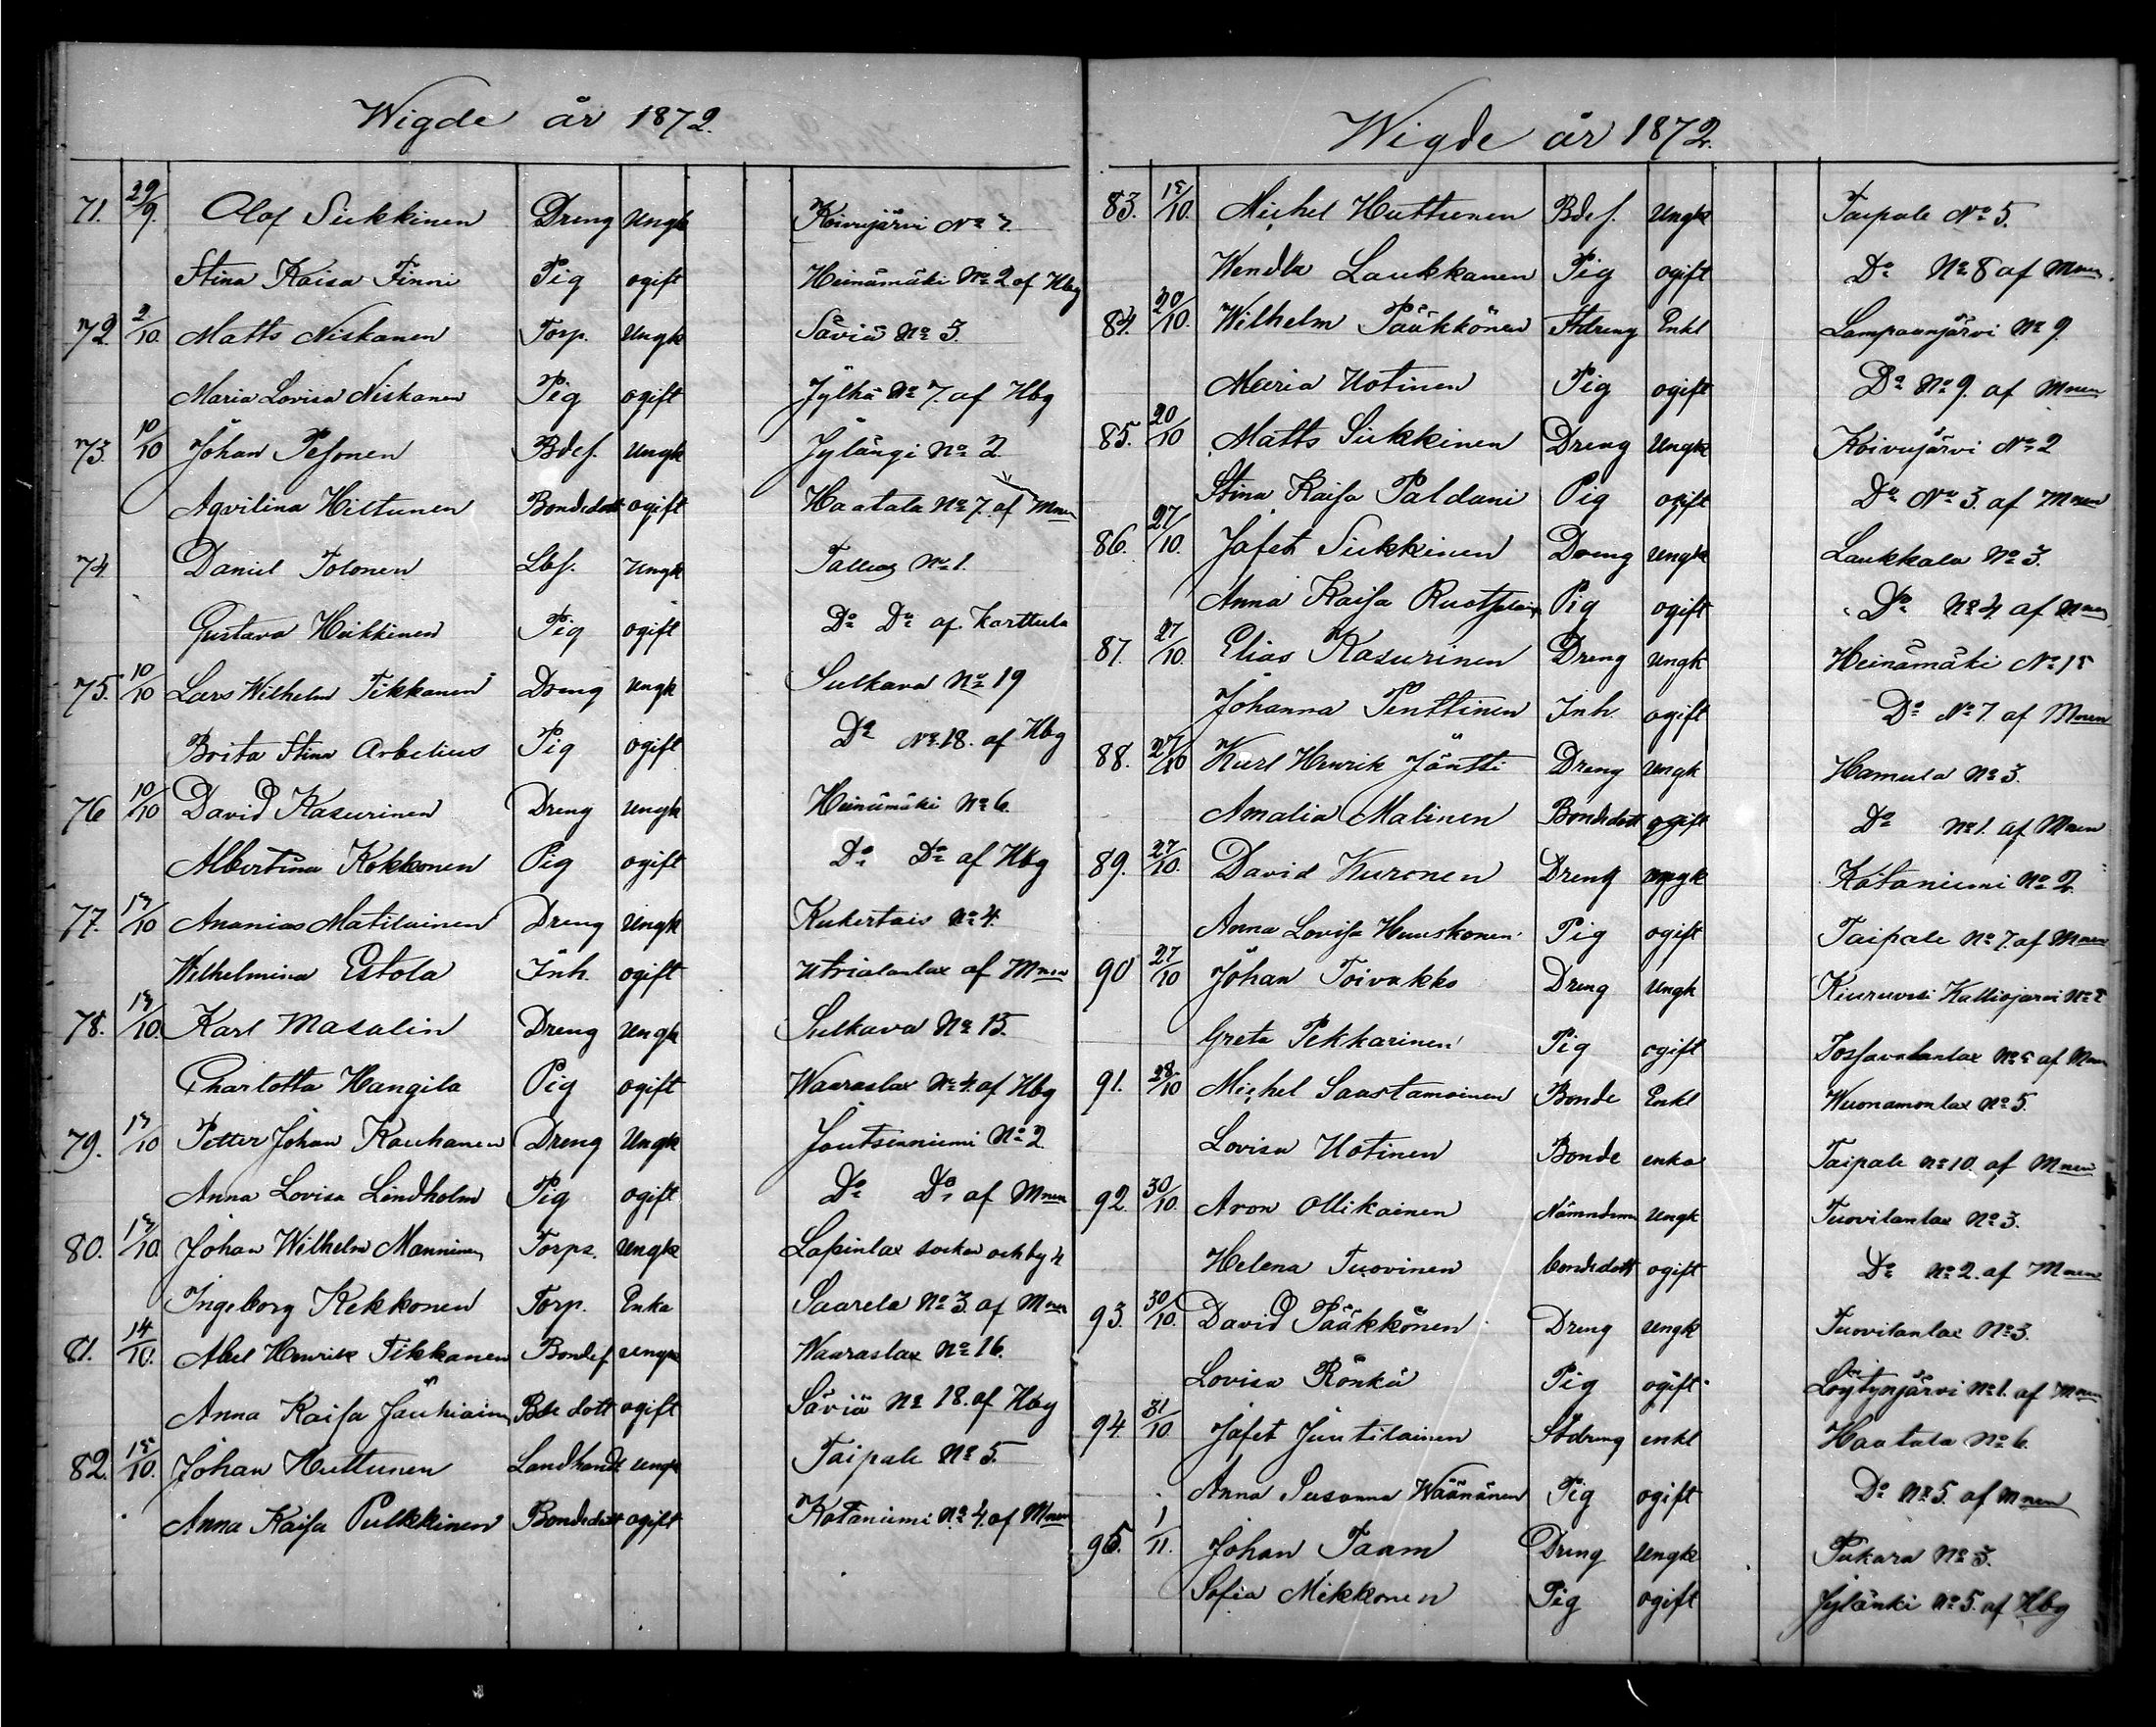 Wigde år 1872.
71. 29/9. Olof Sikkinen Dreng Ungk Koivujärvi No 7.
Stina Kaisa Finni Pig ogift Heinämäki No 2 af Hbg
72 2/10. Matts Niskanen Torp. Ungk Säviä No 3.
Maria Lovisa Niskanen Pig ogift Jylhä No 7. af Hbg
73. 10/10 Johan Pesonen Bdes. Ungk Jylängi No 2
Aqvilina Hiltunen Bondedott ogift Haatala No 7. af Mnen
74. Daniel Tolonen Lbf. Ungk No 1.
Gustava Heikkinen Pig ogift Do Do af Karttula
75. 10/10 Lars Wilhelm Tikkanen Dreng Ungk Sulkava No 19
Brita Stina Arbelius Pig ogift Do No 18. af Hbg
76 10/10 David Kasurinen Dreng Ungk Heinämäki No 6.
Albertina Kokkonen Pig ogift Do Do af Hbg
77. 13/10 Ananias Matilainen Dreng Ungk No 4.
Wilhelmina Estola Inh. ogift Utrialanlax af Mnen
78. 13/10. Karl Masalin Dreng Ungk Sulkava No 15.
Charlotta Hangila Pig ogift Waaraslax No 4. af Hbg
79. 13/10 Petter Johan Kauhanen Dreng Ungk Joutsenniemi No 2
Anna Lovisa Lindholm Pig ogift Do Do af Mnen
80. 13/10. Johan Wilhelm Manninen Torps. Ungk Lapinlax socken och by 4
Ingeborg Kekkonen Torp. Enka Saarela No 3. af Mnen
81. 14/10. Abel Henrik Tikkanen Bondes Ungk Waaraslax No 16.
Anna Kaisa Jauhiainen Bde dott ogift Säviä No 18. af Hbg
82. 15/10. Johan Huttunen Landhandl ungk Taipale No 5.
Anna Kaisa Pulkkinen Bondedott ogift Kotaniemi No 4. af Mnen
Wigde år 1872.
83. 15/10. Michel Huttunen Bdes. Ungk Taipale No 5.
Wendla Laukkanen Pig ogift Do No 8 af Mnen
84. 20/10. Wilhelm Pääkkönen Stdreng Enkl Lampaanjärvi No 9.
Maria Hotinen Pig ogift Do No 9. af Mnen
85. 20/10 Matts Sikkinen Dreng Ungk Koivujärvi No 2
Stina Kaisa Paldani Pig ogift Do No 3. af Mnen
86. 27/10. Jafet Sikkinen Dreng Ungk Laukkala No 3.
Anna Kaisa Ruotsalain Pig ogift Do No 4. af Mnen
87. 27/10. Elias Kasurinen Dreng Ungk Heinämäki No 15
Johanna Penttinen Inh. ogift Do No 7. af Mnen
88. 27/10 Karl Henrik Jäntti Dreng Ungk Hamula No 3.
Amalia Malinen Bondedott ogift Do No 1. af Mnen
89. 27/10. David Kuronen Dreng ungk Kotaniemi No 2.
Anna Lovisa Huuskonen Pig ogift Taipale No 7. af Mnen
90 27/10 Johan Toivakko Dreng Ungk Kiuruvesi Kalliojarvi No 2
Greta Pekkarinen Pig ogift Tossavalanlax No 5 af Mnen
91. 28/10 Michel Saastamoinen Bonde Enkl Wuonamonlax No 5.
Lovisa Hotinen Bonde enka Taipale No 10. af Mnen
92. 30/10. Aron Ollikainen Nämndem Ungk Tuovilanlax No 3.
Helena Tuovinen bondedott ogift Do No 2. af Mnen
93. 30/10. David Pääkkönen Dreng Ungk Tuovilanlax No 3.
Lovisa Rönkä Pig ogift Löytynjärvi No 1. af Mnen
94. 31/10 Jafet Juutilainen Stdreng enkl Haatala No 6.
Anna Susanna Wäänänen Pig ogift Do No 5. af Mnen
95. 1/11. Johan Taam Dreng Ungk Pukara No 3.
Sofia Mikkonen Pig ogift Jylänki No 5. af Hbg